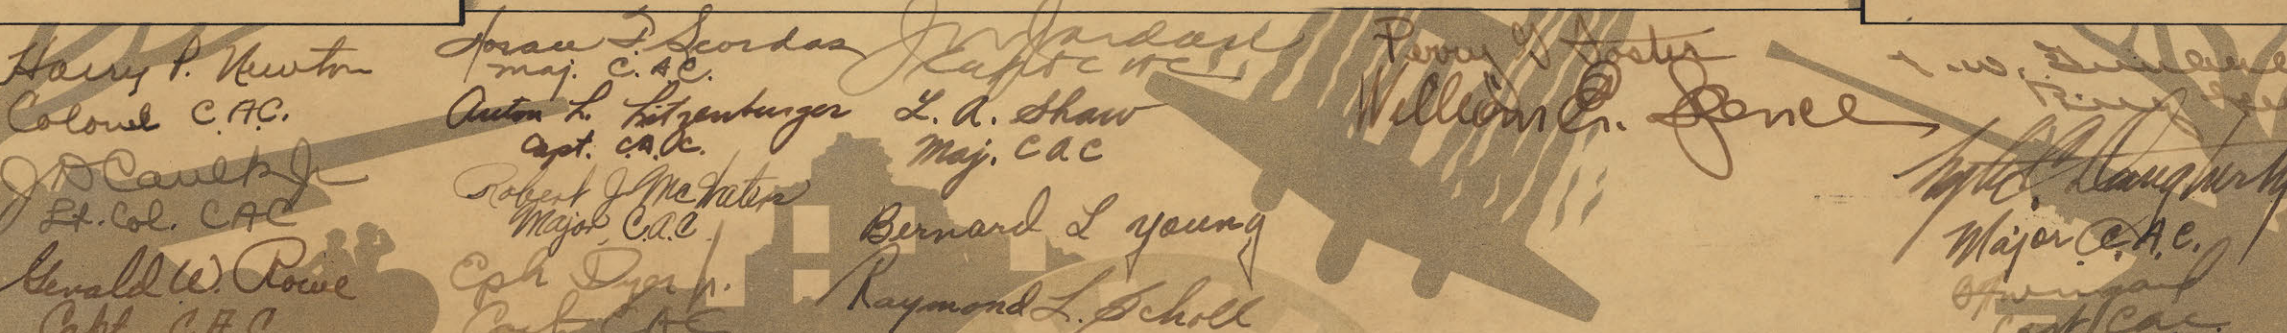 Harry P. Newton
Colonel C.A.C.
J D Caulk Jr
Lt. Col. CAC
Gerald W. Rowe
Capt. C.A.C
Horace F. Scordas
Maj. C.A.C.
Anton L. Litzenburger
Capt. C.A.C.
Robert J. McWaters
Major C.A.C.
Eph Dyer Jr.
Capt CAC
Jordan
L. A. Shaw
Maj. CAC
Bernard L Young
Raymond L. Scholl
Perry G Foster
William E. Jence
Lyle C Daugherty
Major C.A.C.
Capt CAC